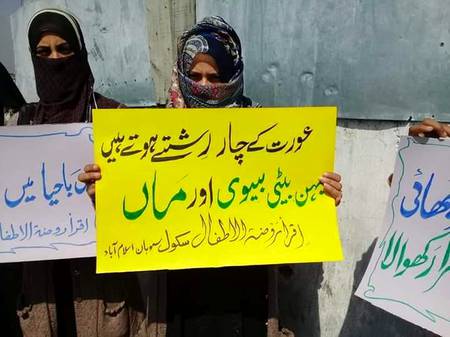 عورت کے چار رشتے ہوتے ہیں
بہن بیٹی بیوی اور ماں
اقرأ روضۃ الاطفال سکول سوہان اسلام آباد
باحیا ہیں
اقرأ روضۃ الاطفال
بھائی
رکھوالا